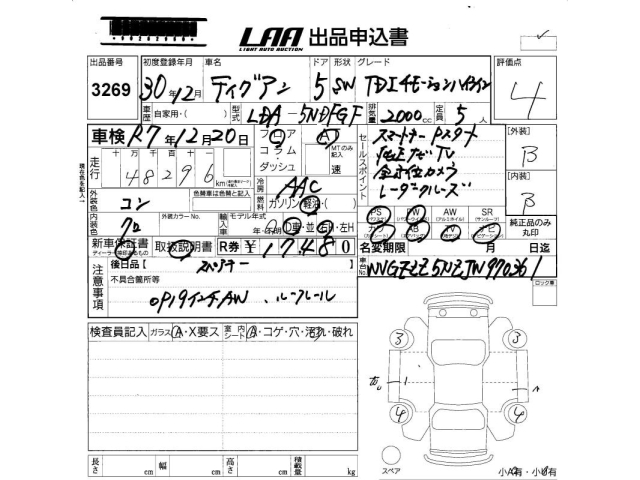 LAA 出品申込書
LIGHT AUTO AUCTION
出品番号 初度登録年月 車名 ドア 形状 グレード 評価点
3269 30年12月 ティグアン 5 SW TDI 4モーションハイライン 4
車歴 自家用・( ) 型式 LDA-5NDFGF 排気量 2000cc 定員 5人
車検 R7年12月20日 フロア A
コラム
ダッシュ MTのみ記入 速
走行 十万千百十一
48296km
現在色を記入→
セールスポイント
スマートキー Pスタート
純正ナビTV
全方位カメラ
レーダークルーズ
[外装] B
[内装] B
冷房 AAC
外装色 コン 色替車は色替と記入
燃料 ガソリン・軽油・( )
内装色 クロ 外装カラーNo. 輸入車 モデル年式 D車・並 右H・左H
PS PW AW SR
(パワステ) (パワーウインド) (アルミホイル) (サンルーフ)
純正品のみ丸印
新車保証書 取扱説明書 R券 ¥17480
名変期限 月 日迄
車台No. WVGZZZ5NZJW970361
注意事項
後日品【 スペアキー 】
不具合箇所等
OP19インチAW、ルーフレール
ロック車
検査員記入 ガラス A・X要ス 室内シート B・コゲ・穴・汚れ・破れ
3 3
1
4 4
スペア 小A有・小B有
長さ cm 幅 cm 高さ cm 積載量 kg